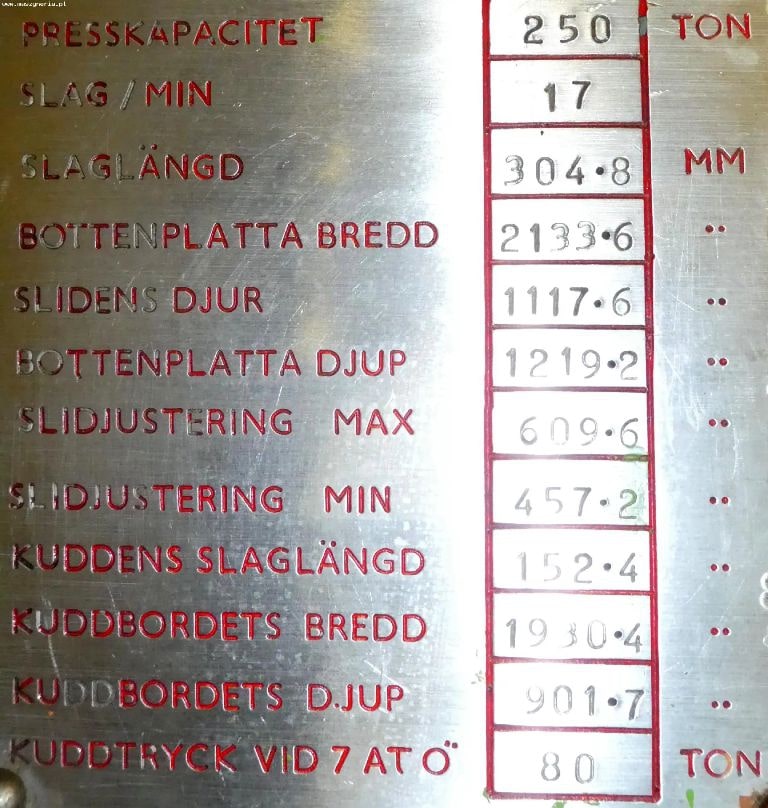 www.maszgneria.pl
PRESSKAPACITET 250 TON
SLAG / MIN 17
SLAGLÄNGD 304·8 MM
BOTTENPLATTA BREDD 2133·6 ¨
SLIDENS DJUR 1117·6 ¨
BOTTENPLATTA DJUP 1219·2 ¨
SLIDJUSTERING MAX 609·6 ¨
SLIDJUSTERING MIN 457·2 ¨
KUDDENS SLAGLÄNGD 152·4 ¨
KUDDBORDETS BREDD 1930·4 ¨
KUDDBORDETS DJUP 901·7 ¨
KUDDTRYCK VID 7 AT Ö 80 TON